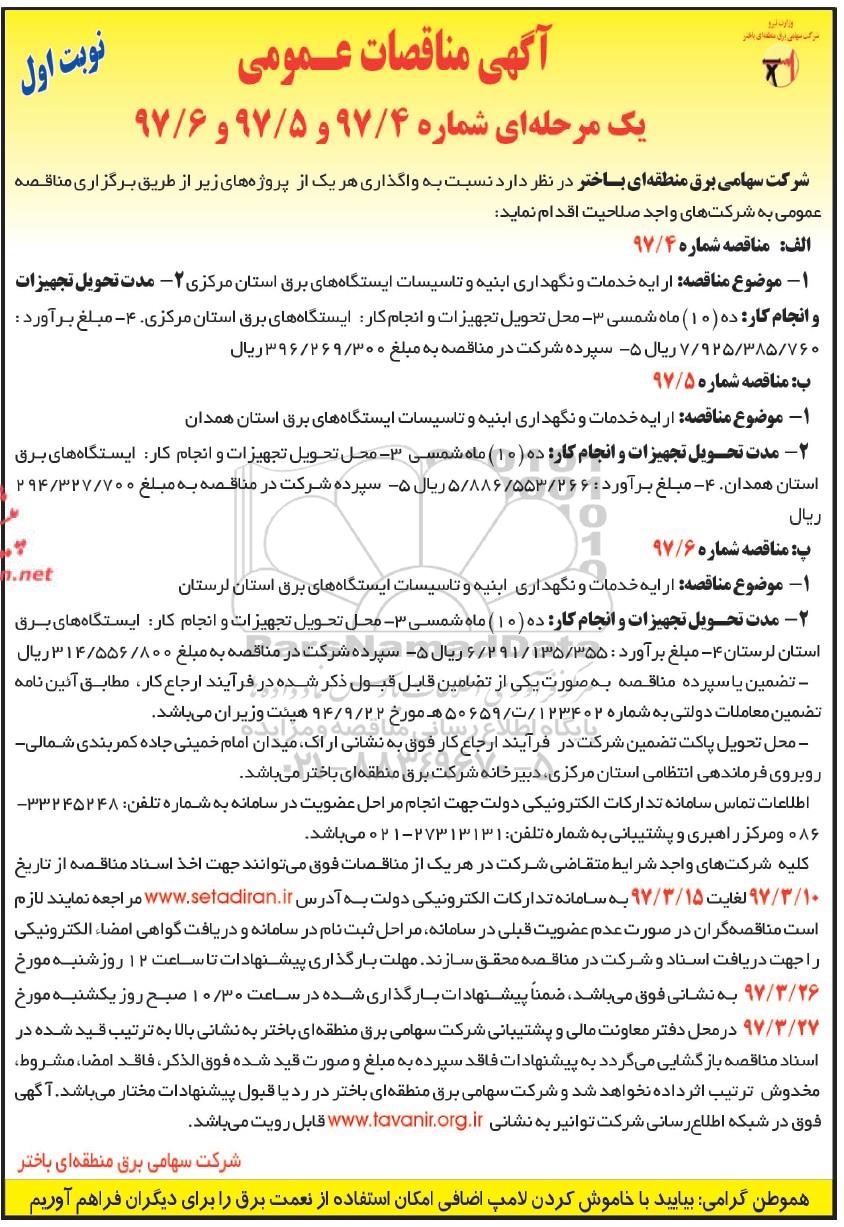 وزارت نیرو
شرکت سهامی برق منطقه‌ای باختر
نوبت اول
آگهی مناقصات عـــمومی
یک مرحله‌ای شماره ۹۷/۴ و ۹۷/۵ و ۹۷/۶
شرکت سهامی برق منطقه‌ای بـــاختر در نظر دارد نسبت به واگذاری هر یک از پروژه‌های زیر از طریق برگزاری مناقصه
عمومی به شرکت‌های واجد صلاحیت اقدام نماید:
الف: مناقصه شماره ۹۷/۴
۱- موضوع مناقصه: ارایه خدمات و نگهداری ابنیه و تاسیسات ایستگاه‌های برق استان مرکزی ۲- مدت تحویل تجهیزات
و انجام کار: ده (۱۰) ماه شمسی ۳- محل تحویل تجهیزات و انجام کار: ایستگاه‌های برق استان مرکزی. ۴- مبلغ برآورد :
۷/۹۲۵/۳۸۵/۷۶۰ ریال ۵- سپرده شرکت در مناقصه به مبلغ ۳۹۶/۲۶۹/۳۰۰ ریال
ب: مناقصه شماره ۹۷/۵
۱- موضوع مناقصه: ارایه خدمات و نگهداری ابنیه و تاسیسات ایستگاه‌های برق استان همدان
۲- مدت تحـــویل تجهیزات و انجام کار: ده (۱۰) ماه شمسی ۳- محل تحویل تجهیزات و انجام کار: ایستگاه‌های برق
استان همدان. ۴- مبلغ برآورد : ۵/۸۸۶/۵۵۳/۲۶۶ ریال ۵- سپرده شرکت در مناقصه به مبلغ ۲۹۴/۳۲۷/۷۰۰
ریال
پ: مناقصه شماره ۹۷/۶
۱- موضوع مناقصه: ارایه خدمات و نگهداری ابنیه و تاسیسات ایستگاه‌های برق استان لرستان
۲- مدت تحـــویل تجهیزات و انجام کار: ده (۱۰) ماه شمسی ۳- محل تحویل تجهیزات و انجام کار: ایستگاه‌های برق
استان لرستان ۴- مبلغ برآورد : ۶/۲۹۱/۱۳۵/۳۵۵ ریال ۵- سپرده شرکت در مناقصه به مبلغ ۳۱۴/۵۵۶/۸۰۰ ریال
- تضمین یا سپرده مناقصه به صورت یکی از تضامین قابل قبول ذکر شده در فرآیند ارجاع کار، مطابق آئین نامه
تضمین معاملات دولتی به شماره ۱۲۳۴۰۲/ت/۵۰۶۵۹ هـ مورخ ۹۴/۹/۲۲ هیئت وزیران می‌باشد.
- محل تحویل پاکت تضمین شرکت در فرآیند ارجاع کار فوق به نشانی اراک، میدان امام خمینی جاده کمربندی شمالی-
روبروی فرماندهی انتظامی استان مرکزی، دبیرخانه شرکت برق منطقه‌ای باختر می‌باشد.
اطلاعات تماس سامانه تدارکات الکترونیکی دولت جهت انجام مراحل عضویت در سامانه به شماره تلفن: ۳۳۲۴۵۲۴۸-
۰۸۶ ومرکز راهبری و پشتیبانی به شماره تلفن: ۲۷۳۱۳۱۳۱-۰۲۱ می‌باشد.
کلیه شرکت‌های واجد شرایط متقاضی شرکت در هر یک از مناقصات فوق می‌توانند جهت اخذ اسناد مناقصه از تاریخ
۹۷/۳/۱۰ لغایت ۹۷/۳/۱۵ به سامانه تدارکات الکترونیکی دولت به آدرس www.setadiran.ir مراجعه نمایند لازم
است مناقصه‌گران در صورت عدم عضویت قبلی در سامانه، مراحل ثبت نام در سامانه و دریافت گواهی امضاء الکترونیکی
را جهت دریافت اسناد و شرکت در مناقصه محقق سازند. مهلت بارگذاری پیشنهادات تا ساعت ۱۲ روز شنبه مورخ
۹۷/۳/۲۶ به نشانی فوق می‌باشد، ضمناً پیشنهادات بارگذاری شده در ساعت ۱۰/۳۰ صبح روز یکشنبه مورخ
۹۷/۳/۲۷ در محل دفتر معاونت مالی و پشتیبانی شرکت سهامی برق منطقه‌ای باختر به نشانی بالا به ترتیب قید شده در
اسناد مناقصه بازگشایی می‌گردد به پیشنهادات فاقد سپرده به مبلغ و صورت قید شده فوق‌الذکر، فاقد امضا، مشروط،
مخدوش ترتیب اثر داده نخواهد شد و شرکت سهامی برق منطقه‌ای باختر در رد یا قبول پیشنهادات مختار می‌باشد. آگهی
فوق در شبکه اطلاع‌رسانی شرکت توانیر به نشانی www.tavanir.org.ir قابل رویت می‌باشد.
شرکت سهامی برق منطقه‌ای باختر
هموطن گرامی: بیایید با خاموش کردن لامپ اضافی امکان استفاده از نعمت برق را برای دیگران فراهم آوریم
ParsNamadData
پایگاه اطلاع رسانی مناقصه و مزایده
۰۲۱-۸۸۳۴۹۶۷۰-۵
n.net